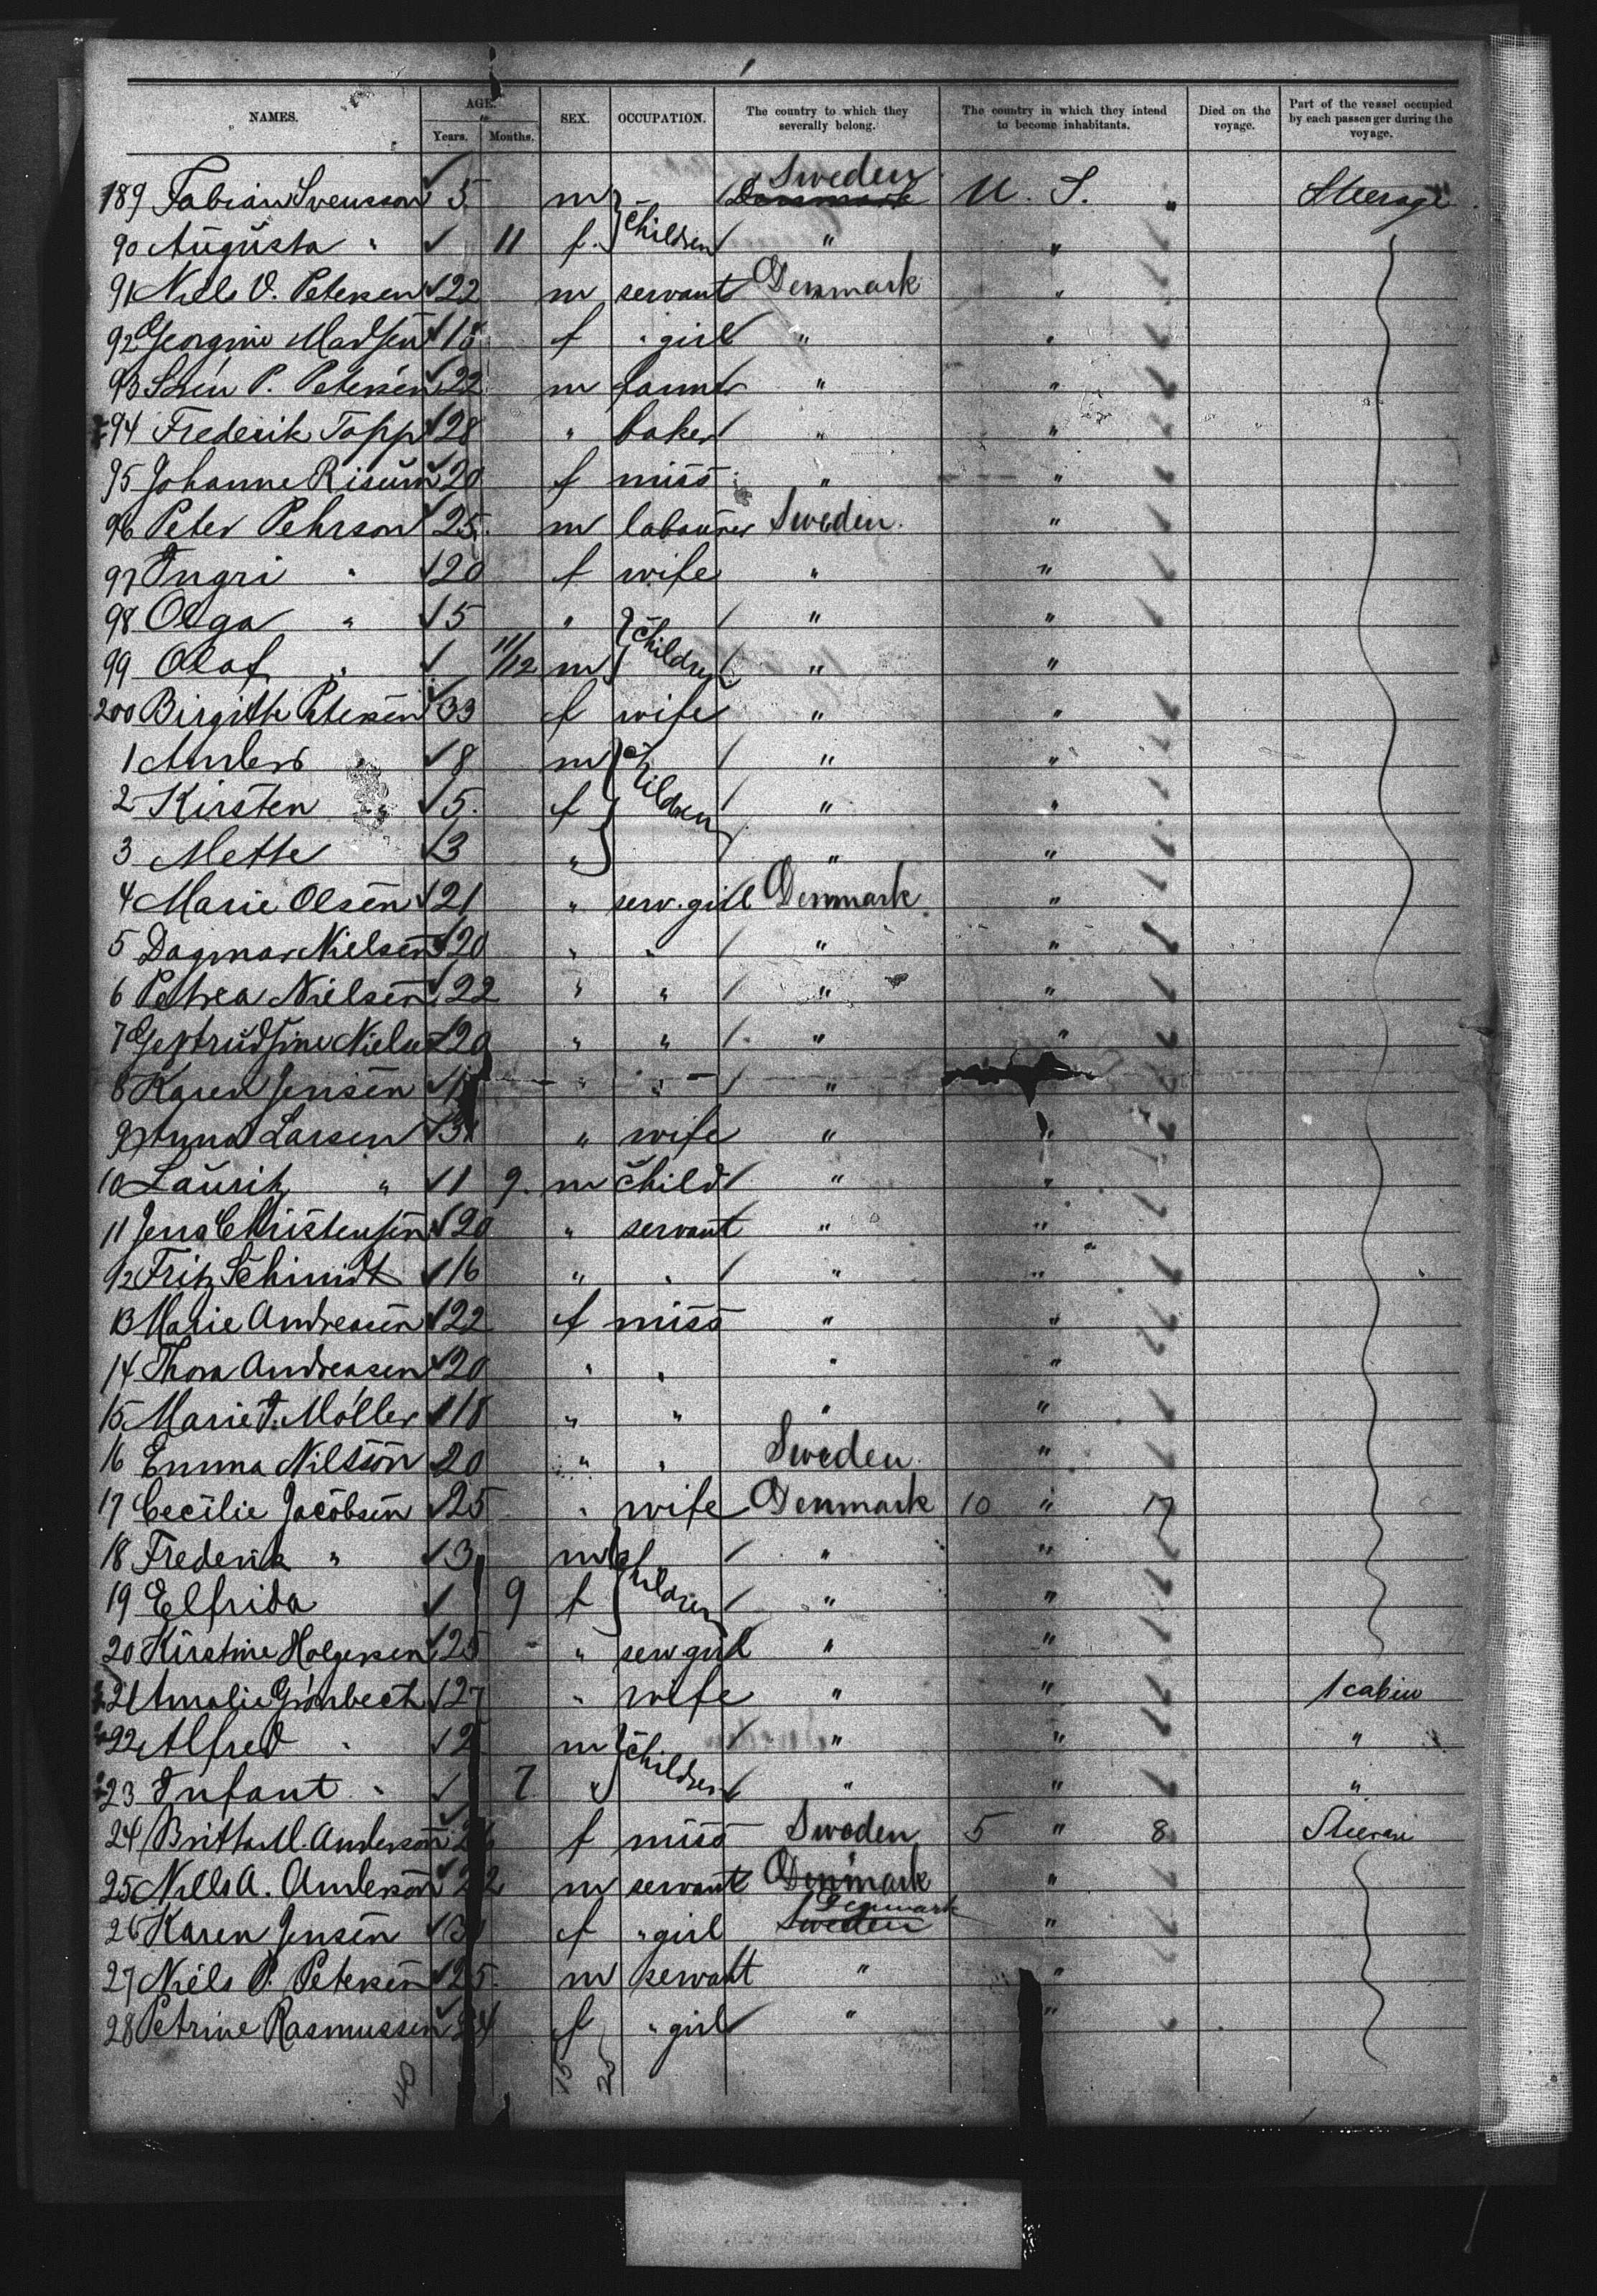 NAMES. AGE. Years. Months. SEX. OCCUPATION. The country to which they severally belong. The country in which they intend to become inhabitants. Died on the voyage. Part of the vessel occupied by each passenger during the voyage.
Sweden
189 Fabian Svensson 5 m Denmark U. S. " Steerage
90 Augusta " 11 f. Children " "
91 Niels O. Petersen 22 m servant Denmark "
92 Georgine Madsen 18 f " girl " "
93 Sören P. Petersen 22 m farmer " "
94 Frederik Topp 28 " baker " "
95 Johanne Risum 20 f miss " "
96 Peter Pehrson 25 m labourer Sweden. "
97 Ingri " 20 f wife " "
98 Olga " 5 " " "
99 Olaf " 11/12 m Children " "
200 Birgitte Petersen 33 f wife " "
1 Anders " 8 m Children " "
2 Kirsten " 5. f " "
3 Mette 3 " " "
4 Marie Olsen 21 " serv. girl Denmark "
5 Dagmar Nielsen 20 " " " "
6 Petrea Nielsen 22 " " " "
7 Gertrudsine Nielse 20 " " " "
8 Karen Jensen " " "
9 Anna Larsen " wife " "
10 Lauritz " 1 9. m child " "
11 Jens Christensen 20 " servant " "
12 Fritz Schmidt 16 " " " "
13 Marie Andreasen 22 f miss " "
14 Thora Andreasen 20 " " " "
15 Marie J. Möller 18 " " " "
16 Emma Nilsson 20 " " Sweden "
17 Cecilie Jacobsen 25 " wife Denmark 10 " 17
18 Frederik " 3 m Children " "
19 Elfrida 9 f " "
20 Kirstine Holgersen 25 " serv girl " "
21 Amalie Grönbech 27 " wife " " 1 cabin
22 Alfred " 2 m Children " " "
23 Infant " 7 " " " "
24 Britta M. Anderson f miss Sweden 5 " 8 Steerage
25 Nills A. Anderson 22 m servant Denmark "
Denmark
26 Karen Jensen f " girl Sweden "
27 Niels P. Petersen 25. m servant " "
28 Petrine Rasmussen 24 f " girl " "
40 15